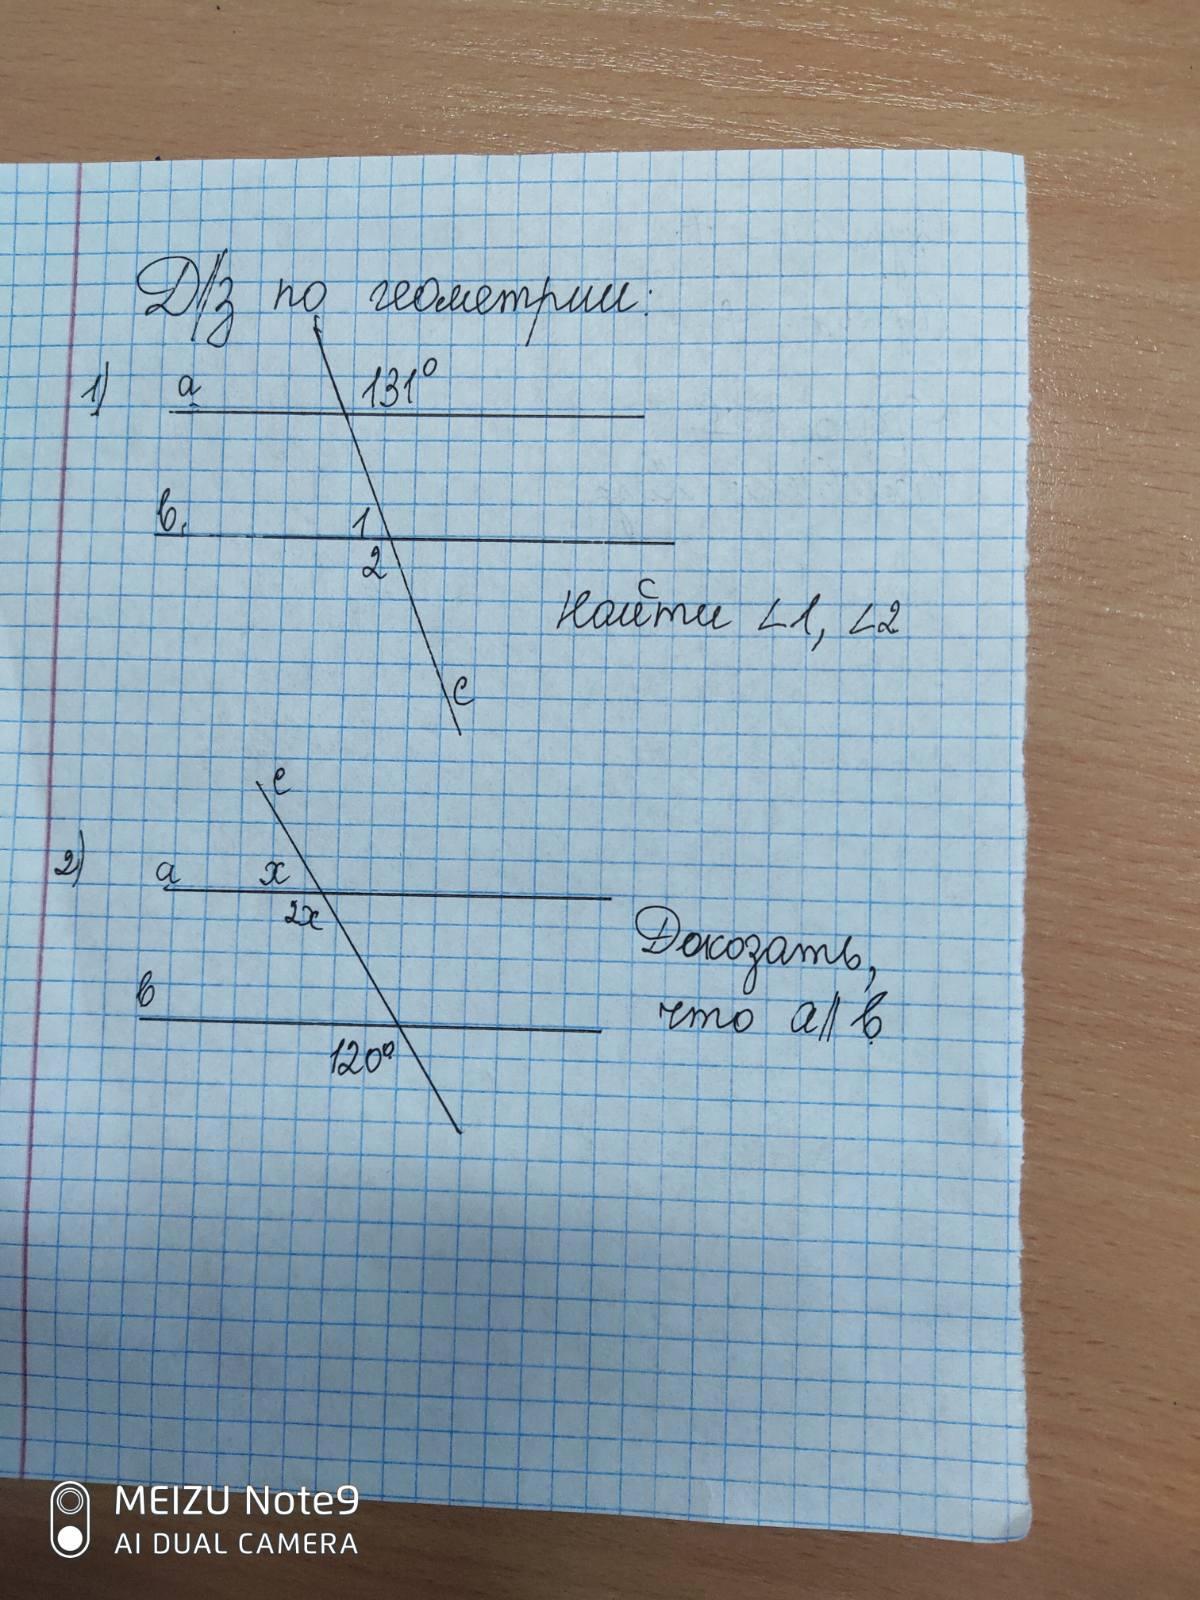 Д/з по геометрии:
1) a 131°
в
1
2
Найти ∠1, ∠2
c
c
2) a x
2x
Докозать,
что a || в
в
120°
MEIZU Note9
AI DUAL CAMERA